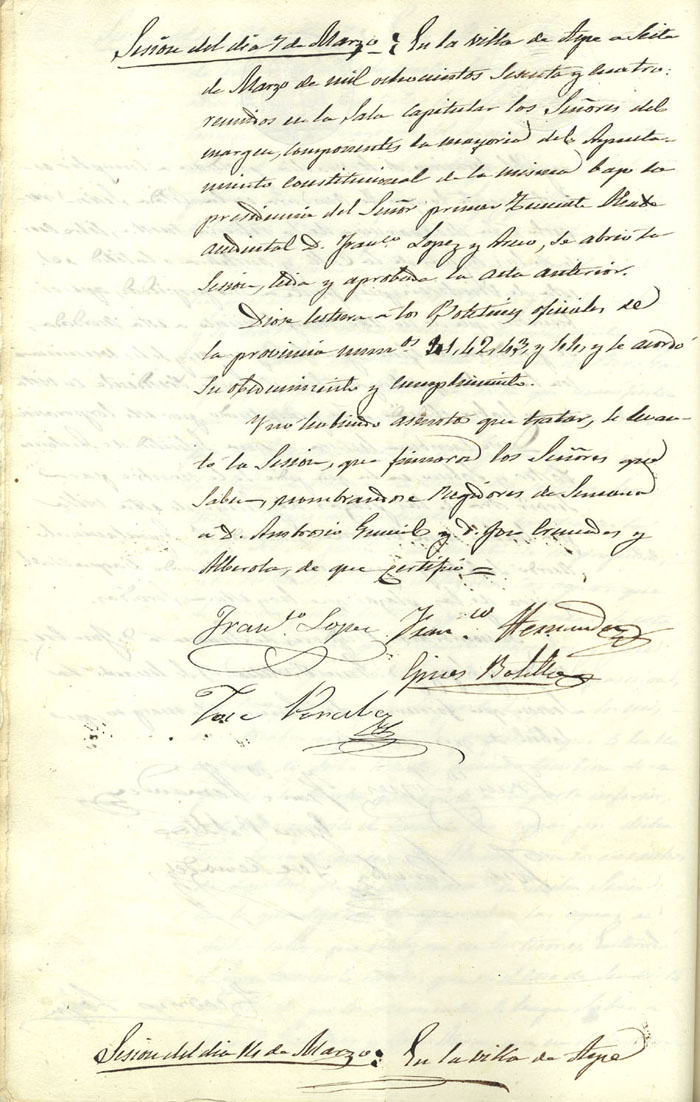 Sesion del dia 7 de Marzo: En la villa de Aspe a Siete
de Marzo de mil ochocientos Sesenta y cuatro:
reunidos en la Sala capitular los Señores del
margen, componentes la mayoria del Ayunta-
miento constitucional de la misma bajo la
presidencia del Señor primer Teniente Alcalde
accidental D. Franco Lopez y Asco, se abrió la
Sesion, leida y aprobada la acta anterior.
Diose lectura a los Boletines oficiales de
la provincia numos 41, 42, 43, y 44, y se acordó
su obedecimiento y cumplimiento.
Y no habiendo asuntos que tratar, se levan-
tó la Sesion, que firmaron los Señores que
Saben, nombrandose Regidores de Semana
a D. Ambrosio y D. Jose y
Alberola, de que certifico =
Franco Lopez Franco Hernandez
Gines Botella
Jose
Sesion del dia 14 de Marzo: En la villa de Aspe